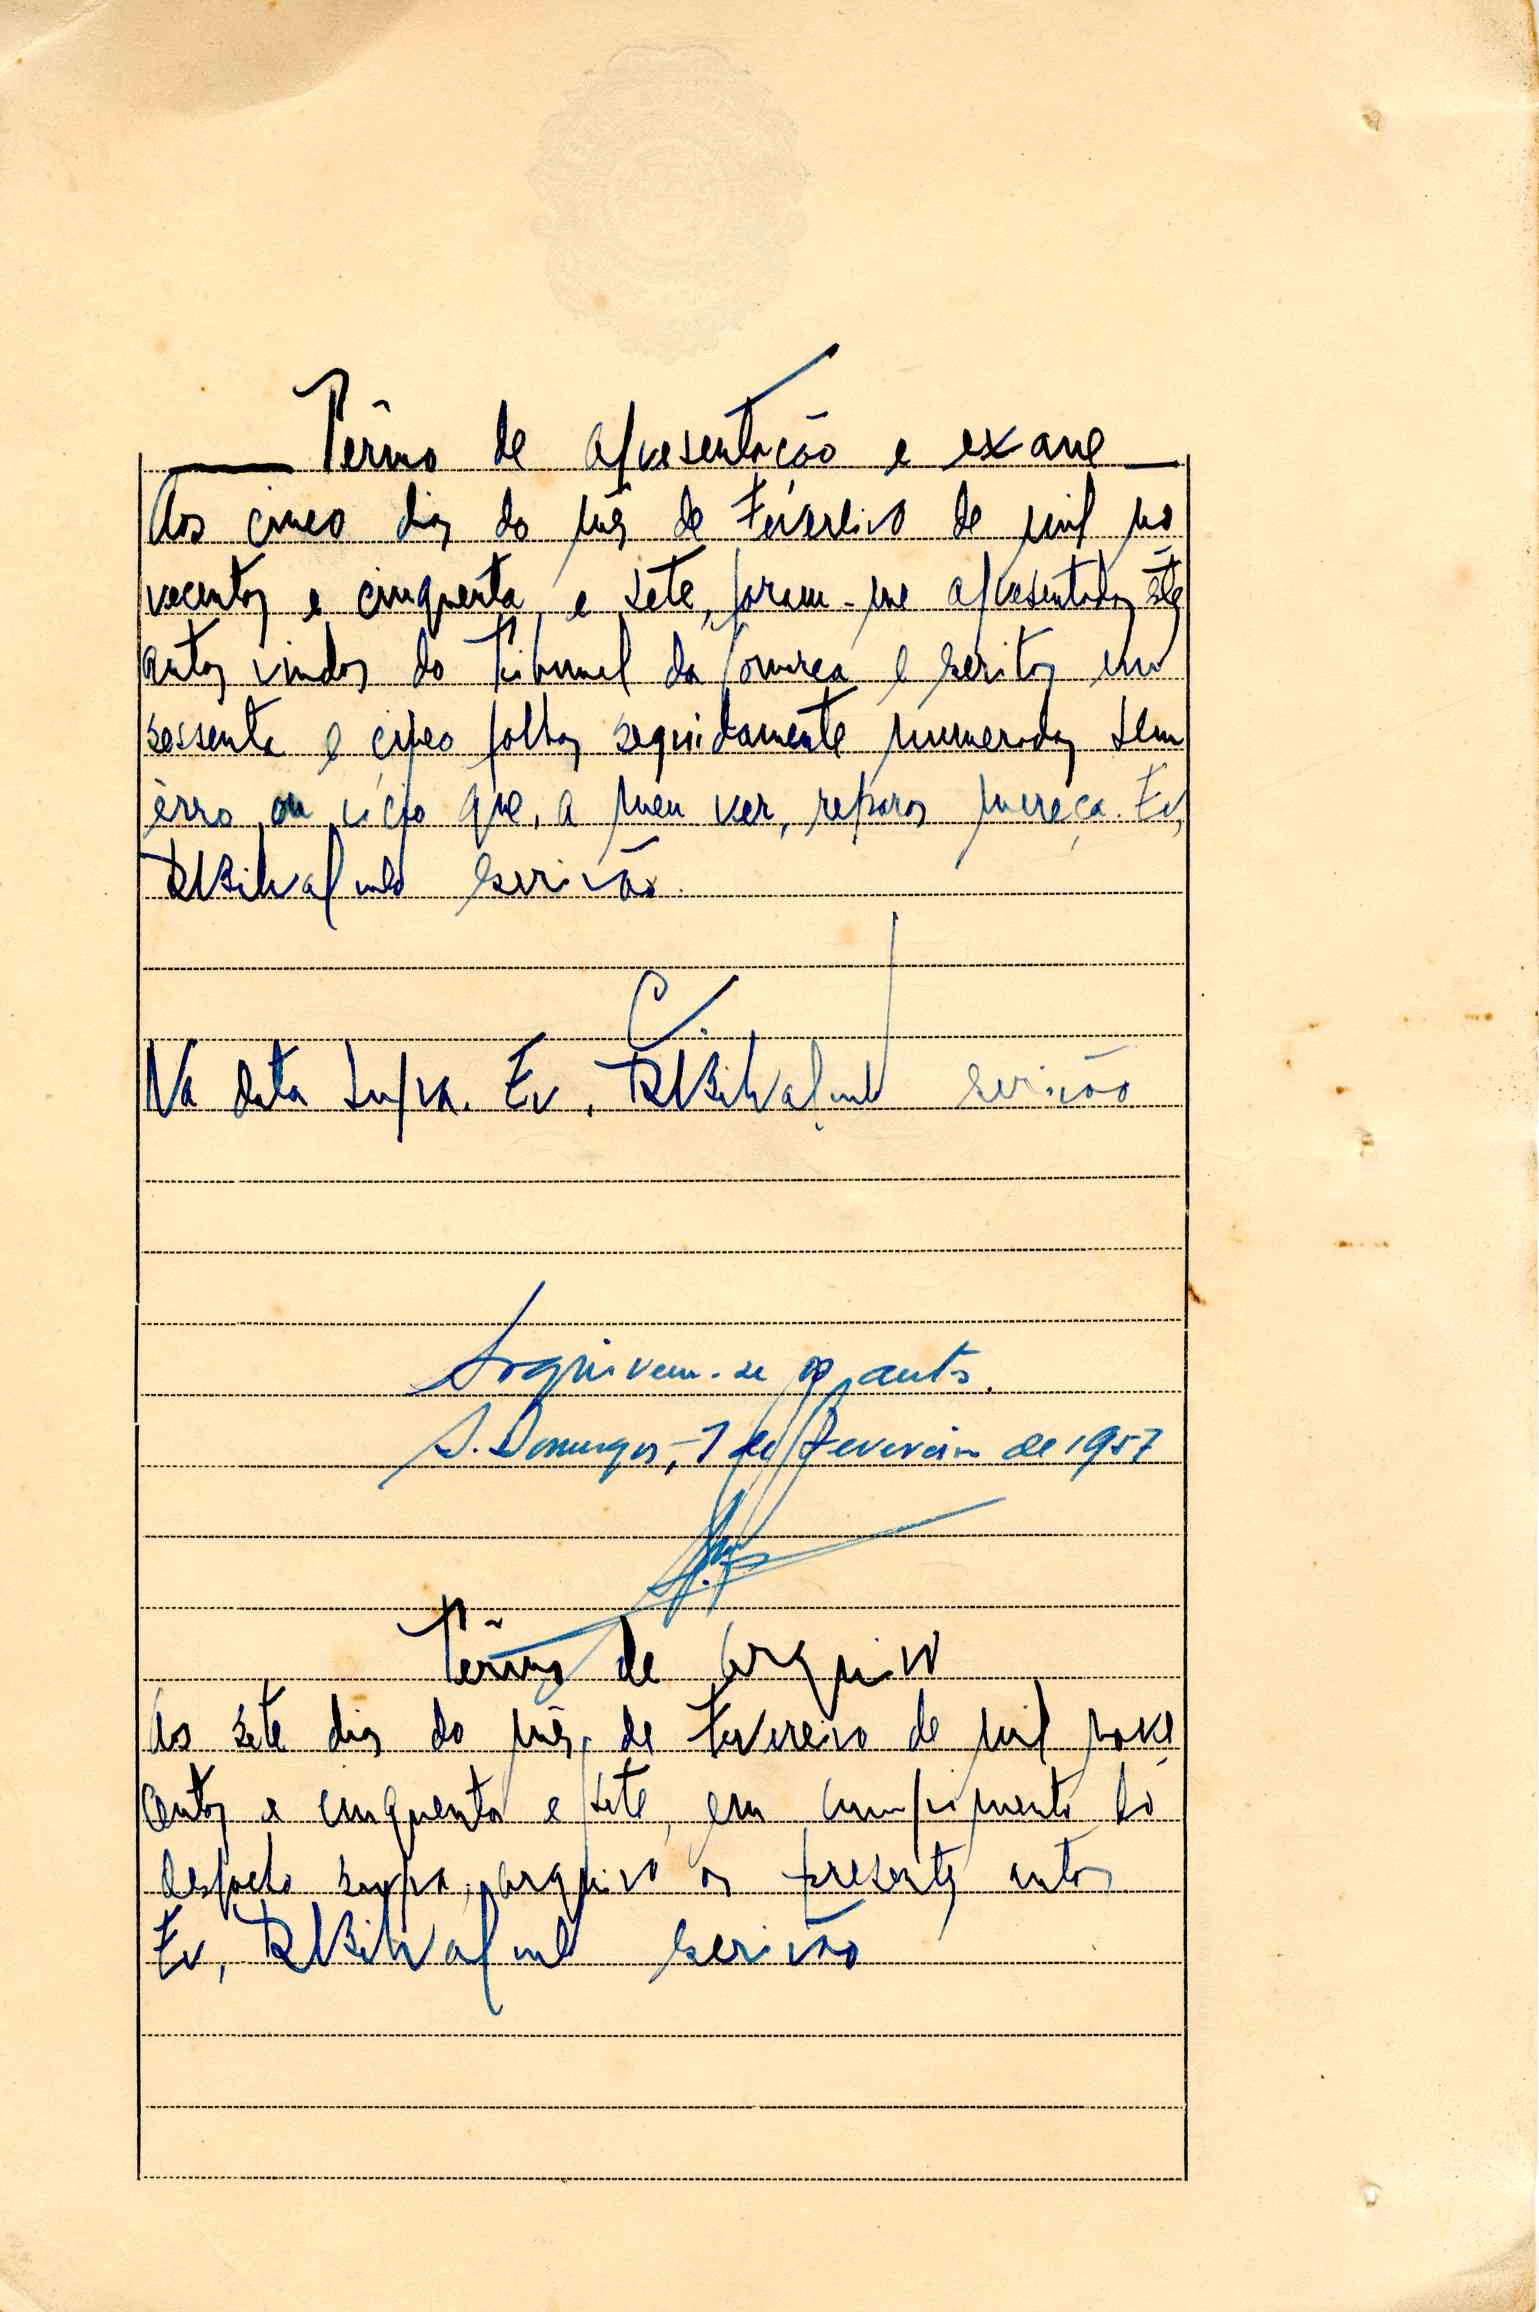 Têrmo de apresentação e exame
Aos cinco dias do mês de Fevereiro de mil no
vecentos e cinquenta e sete, foram-me apresentados êstes
autos vindos do Tribunal da Comarca e escritos em
sessenta e cinco folhas seguidamente numeradas sem
êrro ou vício que, a meu ver, reparos mereça. Eu,
escrivão.
C.
Na data supra. Eu, escrivão
Arquivem-se os autos.
S. Domingos, 7 de Fevereiro de 1957
Têrmo de arquivo
Aos sete dias do mês de Fevereiro de mil nove
centos e cinquenta e sete, em cumprimento do
despacho supra, arquivo os presentes autos
Eu, escrivão